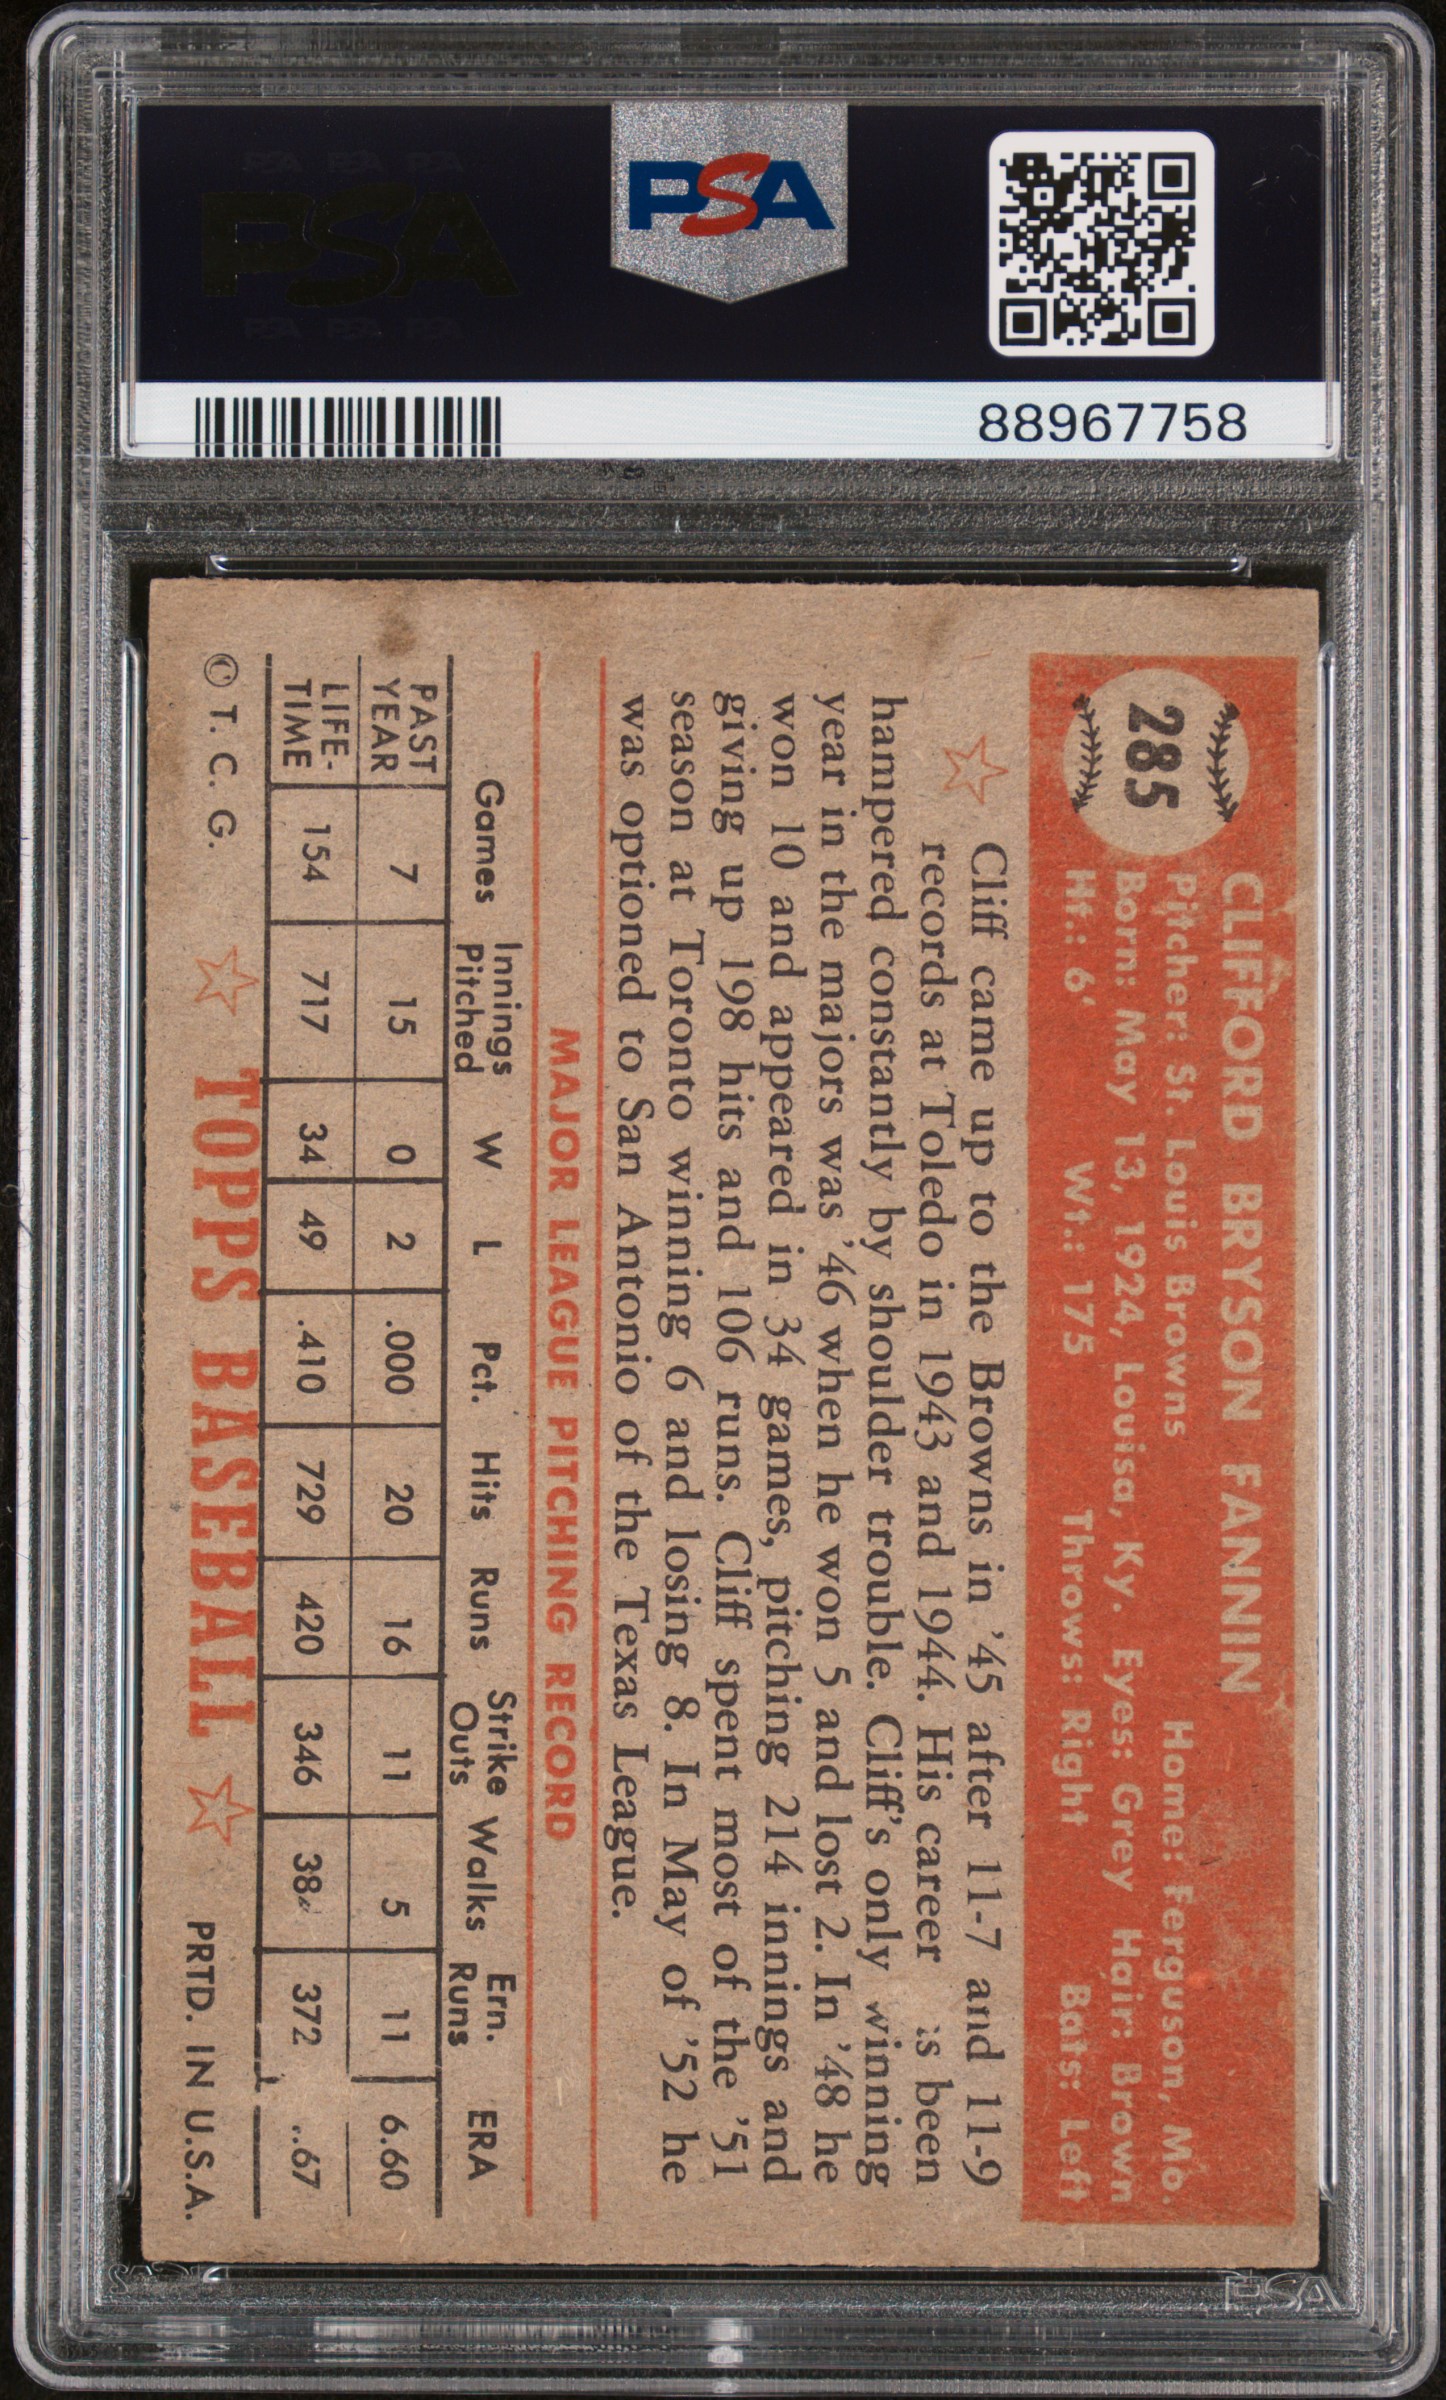 PSA
PSA PSA PSA
PSA
PSA PSA PSA
88967758
285
CLIFFORD BRYSON FANNIN
Pitcher: St. Louis Browns Home: Ferguson, Mo.
Born: May 13, 1924, Louisa, Ky. Eyes: Grey Hair: Brown
Ht.: 6' Wt.: 175 Throws: Right Bats: Left
Cliff came up to the Browns in '45 after 11-7 and 11-9
records at Toledo in 1943 and 1944. His career is been
hampered constantly by shoulder trouble. Cliff's only winning
year in the majors was '46 when he won 5 and lost 2. In '48 he
won 10 and appeared in 34 games, pitching 214 innings and
giving up 198 hits and 106 runs. Cliff spent most of the '51
season at Toronto winning 6 and losing 8. In May of '52 he
was optioned to San Antonio of the Texas League.
MAJOR LEAGUE PITCHING RECORD
Games Innings Pitched W L Pct. Hits Runs Strike Outs Walks Ern. Runs ERA
PAST YEAR 7 15 0 2 .000 20 16 11 5 11 6.60
LIFE-TIME 154 717 34 49 .410 729 420 346 38 372 .67
© T. C. G. TOPPS BASEBALL PRTD. IN U.S.A.
PSA